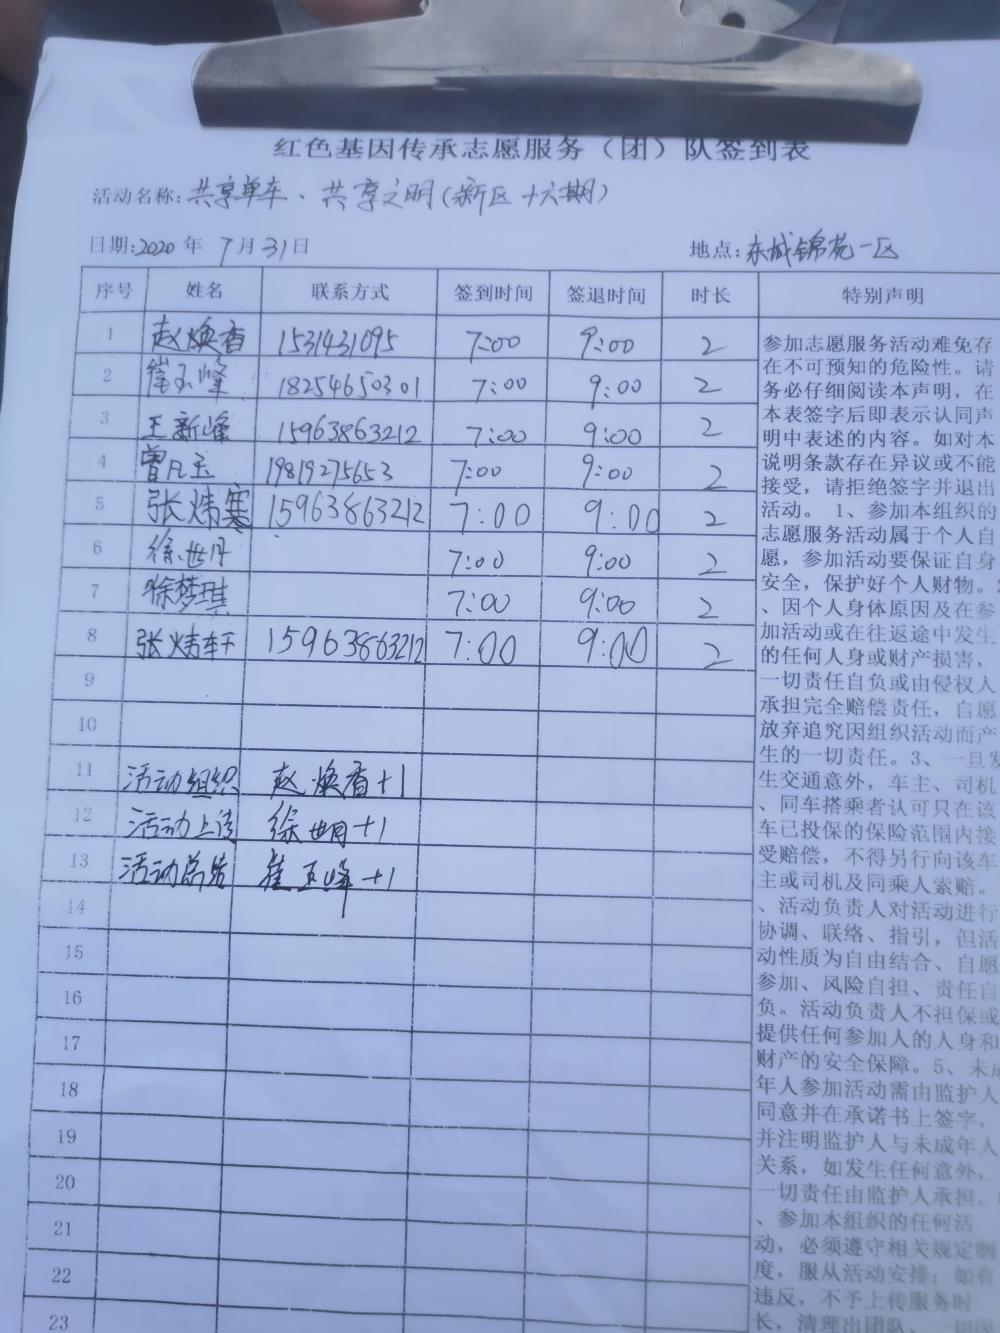 红色基因传承志愿服务（团）队签到表
活动名称:共享单车、共享文明(新区十六期)
日期:2020年7月31日 地点:东城锦苑一区
序号 姓名 联系方式 签到时间 签退时间 时长 特别声明
1 赵焕香 1531431095 7:00 9:00 2
2 崔玉峰 18254650301 7:00 9:00 2
3 王新峰 15963863212 7:00 9:00 2
4 曾凡玉 19819275653 7:00 9:00 2
5 张炜寒 15963863212 7:00 9:00 2
6 徐世月 7:00 9:00 2
7 徐梦琪 7:00 9:00 2
8 张炜轩 15963863212 7:00 9:00 2
9
10
11 活动组织 赵焕香+1
12 活动上传 徐世月+1
13 活动总结 崔玉峰+1
14
15
16
17
18
19
20
21
22
23
参加志愿服务活动难免存
在不可预知的危险性。请
务必仔细阅读本声明，在
本表签字后即表示认同声
明中表述的内容。如对本
说明条款存在异议或不能
接受，请拒绝签字并退出
活动。1、参加本组织的
志愿服务活动属于个人自
愿，参加活动要保证自身
安全，保护好个人财物。2
、因个人身体原因及在参
加活动或在往返途中发生
的任何人身或财产损害，
一切责任自负或由侵权人
承担完全赔偿责任，自愿
放弃追究因组织活动而产
生的一切责任。3、一旦发
生交通意外，车主、司机
、同车搭乘者认可只在该
车已投保的保险范围内接
受赔偿，不得另行向该车
主或司机及同乘人索赔。
、活动负责人对活动进行
协调、联络、指引，但活
动性质为自由结合、自愿
参加、风险自担、责任自
负。活动负责人不担保或
提供任何参加人的人身和
财产的安全保障。5、未成
年人参加活动需由监护人
同意并在承诺书上签字，
并注明监护人与未成年人
关系，如发生任何意外，
一切责任由监护人承担。
、参加本组织的任何活
动，必须遵守相关规定制
度，服从活动安排；如有
违反，不予上传服务时
长，清理出团队，一切